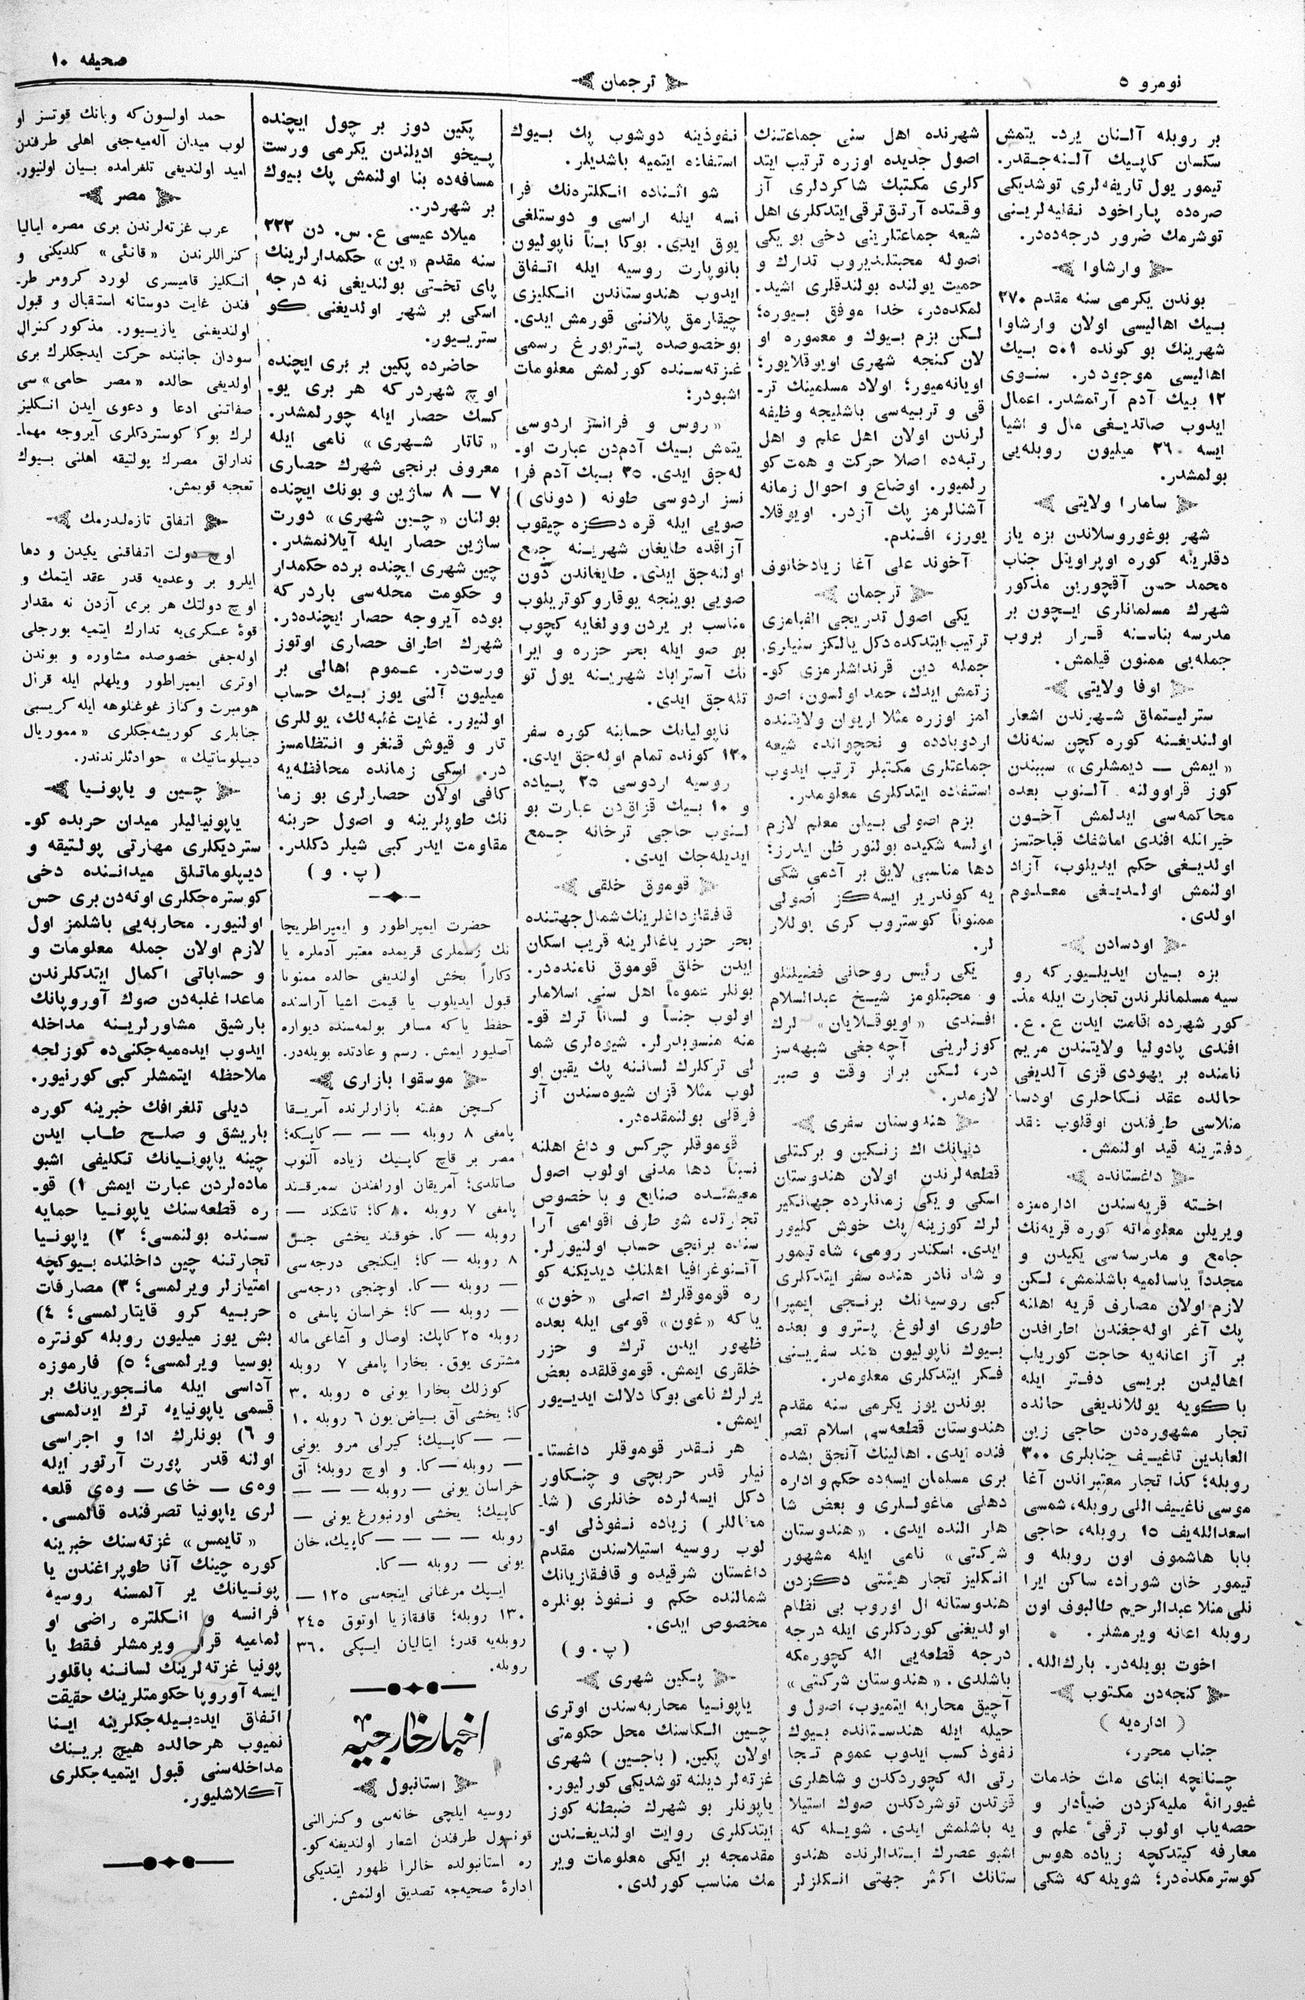 نومرو ٥
ترجمان
صحیفه ١٠
بر روبله آلنان یرد. یتمش
سکسان کاپیك آلنه‌جقدر.
تیمور یول تاریفه‌لری توشدیکی
صره‌ده پاراخود نقلیه‌لرینی
توشرمك ضرور درجه‌ده‌در.
وارشاوا
بوندن یکرمی سنه مقدم ٢٧٠
بیك اهالیسی اولان وارشاوا
شهرینك بو کونده ٥٠١ بیك
اهالیسی موجوددر. سنوی
١٢ بیك آدم آرتمشدر. اعمال
ایدوب صاتدیغی مال و اشیا
ایسه ٢٦ میلیون روبله‌یی
بولمشدر.
سامارا ولایتی
شهر بوغوروسلاندن بزه یاز
دقلرینه کوره اوپراویتل جناب
محمد حسن آقچورین مذکور
شهرك مسلمانلری ایچون بر
مدرسه بناسنه قرار بروب
جمله‌یی ممنون قیلمش.
اوفا ولایتی
سترلیتماق شهرندن اشعار
اولندیغنه کوره کچن سنه‌نك
«ایمش — دیمشلری» سببندن
کوز قراوولنه آلنوب بعده
محاکمه‌سی ایدلمش آخون
خیرالله افندی اماشفك قباحتسز
اولدیغی حکم ایدیلوب، آزاد
اولنمش اولدیغی معلوم
اولدی.
اودسادن
بزه بیان ایدیلیورکه رو
سیه مسلمانلرندن تجارت ایله مذ-
کور شهرده اقامت ایدن ع. ع.
افندی پادولیا ولایتندن مریم
نامنده بر یهودی قزی آلدیغی
حالده عقد نکاحلری اودسا
منلاسی طرفندن اوقلوب نقد
دفترینه قید اولنمش.
داغستانده
اخته قریه‌سندن اداره‌مزه
ویریلن معلوماته کوره قریه‌نك
جامع و مدرسه‌سی یکیدن و
مجدداً یاسالمیه باشلنمش، لکن
لازم اولان مصارف قریه اهلنه
پك آغر اوله‌جغندن اطرافدن
بر آز اعانه‌یه حاجت کوریاب
اهالیدن بریسی دفتر ایله
باکویه یوللاندیغی حالده
تجار مشهوره‌دن حاجی زین
العابدین تاغییف جنابلری ٣٠٠
روبله؛ کذا تجار معتبراندن آغا
موسی ناغییف اللی روبله، شمسی
اسعدالله‌یف ١٥ روبله، حاجی
بابا هاشموف اون روبله و
تیمور خان شوراده ساکن ایرا
نلی منلا عبدالرحیم طالبوف اون
روبله اعانه ویرمشلر.
اخوت بویله‌در. بارك الله.
کنجه‌دن مکتوب
( اداره‌یه )
جناب محرر،
چنانچه ابنای ملت خدمات
غیورانهٔ ملیه‌کزدن ضیأدار و
حصه‌یاب اولوب ترقیٔ علم و
معارفه کیتدکچه زیاده هوس
کوسترمکده‌در؛ شویله‌که شکی
شهرنده اهل سنی جماعتنك
اصول جدیده اوزره ترتیب ایتد
کلری مکتبك شاکردلری آز
وقتده آرتق ترقی ایتدکلری اهل
شیعه جماعتلرینی دخی بو یکی
اصوله محبتلندیروب تدارك و
حمیت یولنده بولندقلری اشید.
لمکده‌در، خدا موفق بیوره؛
لکن بزم بیوك و معموره او
لان کنجه شهری اویوقلایور؛
اویانه‌میور؛ اولاد مسلمینك تر-
قی و تربیه‌سی باشلیجه وظیفه
لرندن اولان اهل علم و اهل
رتبه‌ده اصلا حرکت و همت کو
رلمیور. اوضاع و احوال زمانه
آشنالرمز پك آزدر. اویوقلا-
یورز، افندم.
آخوند علی آغا زیادخانوف
ترجمان
یکی اصول تدریجی الفبامزی
ترتیب ایتدکده دکل یالکز سنیلری،
جمله دین قرنداشلرمزی کو.
زتمش ایدك، حمد اولسون، اصو
لمز اوزره مثلا اریوان ولایتنده
اردوبادده و نخچوانده، شیعه
جماعتلری مکتبلر ترتیب ایدوب
استفاده ایتدکلری معلومدر.
بزم اصولی بیان معلم لازم
اولسه شکیده بولنور ظن ایدرز؛
دها مناسبی لایق بر آدمی شکی
یه کوندریر ایسه‌کز اصولی
ممنوناً کوستروب کری یوللار
لر.
یکی رئیس روحانی فضیلتلو
و محبتلومز شیخ عبدالسلام
افندی «اویوقلایان» لرك
کوزلرینی آچه‌جغی شبهه‌سز
در، لکن براز وقت و صبر
لازمدر.
هندوستان سفری
دنیانك اك زنکین و برکتلی
قطعه‌لرندن اولان هندوستان
اسکی و یکی زمانلرده جهانکیر
لرك کوزینه پك خوش کلیور
ایدی. اسکندر رومی، شاه تیمور
و شاه نادر هنده سفر ایتدکلری
کبی روسیه‌نك برنجی ایمپرا
طوری اولوغ پترو و بعده
بیوك ناپولیون هند سفرینی
فکر ایتدکلری معلومدر.
بوندن یوز یکرمی سنه مقدم
هندوستان قطعه‌سی اسلام تصر
فنده ایدی. اهالینك آنجق بشده
بری مسلمان ایسه‌ده حکم و اداره
دهلی ماغوللری و بعض شا
هلر النده ایدی. «هندوستان
شرکتی» نامی ایله مشهور
انکلیز تجار هیئتی دکزدن
هندوستانه ال اوروب بی نظام
اولدیغنی کوردکلری ایله درجه
درجه قطعه‌یی اله کچورمکه
باشلدی. «هندوستان شرکتی»
آچیق محاربه ایتمیوب، اصول و
حیله ایله هندستانده بیوك
نفوذ کسب ایدوب عموم تجا
رتی اله کچوردکدن و شاهلری
قوتدن توشردکدن صوك استیلا
یه باشلمش ایدی. شویله که
اشبو عصرك ابتدالرنده هندو
ستانك اکثر جهتی انکلزلر
نفوذینه دوشوب پك بیوك
استفاده ایتمیه باشدیلر.
شو اثناده انکلتره‌نك فرا
نسه ایله اراسی و دوستلغی
یوق ایدی. بوکا بناً ناپولیون
بانوپارت روسیه ایله اتفاق
ایدوب هندوستاندن انکلیزی
چیقارمق پلاننی قورمش ایدی.
بوخصوصده پتربورغ رسمی
غزته‌سنده کورلمش معلومات
اشبودر:
«روس و فرانسز اردوسی
یتمش بیك آدم‌دن عبارت او-
له‌جق ایدی. ٣٥ بیك آدم فرا
نسز اردوسی طونه (دونای)
صویی ایله قره دکزه چیقوب
آزاقده طایغان شهرینه جمع
اولنه‌جق ایدی. طایغاندن دون
صویی بوینجه یوقارو کوتریلوب
مناسب بر یردن وولغایه کچوب
بو صو ایله بحر حزره و ایرا
نك آستراباد شهرینه یول تو
تله‌جق ایدی.
ناپولیانك حسابنه کوره سفر
١٣٠ کونده تمام اوله‌جق ایدی.
روسیه اردوسی ٢٥ پیاده
و ١٠ بیك قزاق‌دن عبارت بو
لنوب حاجی ترخانه جمع
ایدیله‌جك ایدی.
قوموق خلقی
قافقاز داغلرینك شمال جهتنده
بحر حزر یاغالرینه قریب اسکان
ایدن خلق قوموق نامنده‌در.
بونلر عموماً اهل سنی اسلامار
اولوب جنساً و لساناً ترك قو-
منه منسوبدرلر. شیوه‌لری شما
لی ترکلرك لساننه پك یقین او
لوب مثلا قزان شیوه‌سندن آز
فرقلی بولنمقده‌در.
قوموقلر چرکس و داغ اهلنه
نسبتاً دها مدنی اولوب اصول
معیشتده صنایع و با خصوص
تجارتده شو طرف اقوامی آرا
سنده برنجی حساب اولنیورلر.
آتنوغرافیا اهلنك دیدیکنه کو
ره قوموقلرك اصلی «خون»
یاکه «غون» قومی ایله بعده
ظهور ایدن ترك و حزر
خلقری ایمش. قوموقلقده بعض
یرلرك نامی بوکا دلالت ایدییور
ایمش.
هر نقدر قوموقلر داغستا.
نیلر قدر حربچی و چنکاور
دکل ایسه‌لرده خانلری (شا.
مخاللر) زیاده نفوذلی او-
لوب روسیه استیلاسندن مقدم
داغستان شرقیده و قافقازیانك
شمالنده حکم و نفوذ بونلره
مخصوص ایدی.
( پ. و )
پکین شهری
یاپونیا محاربه‌سندن اوتری
چین الکاسنك محل حکومتی
اولان پکین. (باجین) شهری
غزته‌لر دیلنه توشدیکی کورلیور.
یاپونلر بو شهرك ضبطنه کوز
ایتدکلری روایت اولندیغندن
مقدمجه بر ایکی معلومات ویر
مك مناسب کورلدی.
پکین دوز بر چول ایچنده
پیخو ادیلندن یکرمی ورست
مسافه‌ده بنا اولنمش پك بیوك
بر شهردر..
میلاد عیسی ع. س. دن ٢٢٢
سنه مقدم «ین» حکمدارلرینك
پای تختی بولندیغی نه درجه
اسکی بر شهر اولدیغنی کو
ستریور.
حاضرده پکین بر بری ایچنده
اوچ شهردرکه هر بری یو-
کسك حصار ایله چورلمشدر.
«تاتار شهری» نامی ایله
معروف برنجی شهرك حصاری
٧ — ٨ ساژین و بونك ایچنده
بولنان «چین شهری» دورت
ساژین حصار ایله آیلانمشدر.
چین شهری ایچنده برده حکمدار
و حکومت محله‌سی باردرکه
بوده آیروجه حصار ایچنده‌در.
شهرك اطراف حصاری اوتوز
ورست‌در. عموم اهالی بر
میلیون آلنی یوز بیك حساب
اولنیور. غایت غلبه‌لك، یوللری
تار و قیوش قنغر و انتظامسز
در. اسکی زمانده محافظه‌یه
کافی اولان حصارلری بو زما
نك طوپلرینه و اصول حربنه
مقاومت ایدر کبی شیلر دکلدر.
( پ. و )
حضرت ایمپراطور و ایمپراطریچا
نك رسملری قریمده معتبر آدملره یا
دکاراً بخش اولندیغی حالده ممنوناً
قبول ایدیلوب یا قیمت اشیا آراسنده
حفظ یاکه مسافر بولمه‌سنده دیواره
آصلیور ایمش. رسم و عادتده بویله‌در.
موسقوا بازاری
کچن هفته بازارلرنده آمریقا
پامغی ٨ روبله — — — کاپیکه؛
مصر بر قاچ کاپیك زیاده آلنوب
صاتلدی؛ آمریقان اورلغندن سمرقند
پامغی ٧ روبله ٨٠ کا؛ تاشکند —
روبله — کا. خوقند یخشی جنس
٨ روبله — کا؛ ایکنجی درجه‌سی
— روبله — کا. اوچنجی درجه‌سی
— روبله — کا؛ خراسان پامغی ٥
روبله ٢٥ کاپك: اوصال و آشاغی ماله
مشتری یوق. بخارا پامغی ٧ روبله
کوزلك بخارا یونی ٥ روبله ٣٠
کا؛ یخشی آق بیاض یون ٦ روبله ١٠
— — کاپیك؛ کیرلی مرو یونی
— روبله — کا. و اوچ روبله؛ آق
خراسان یونی — روبله — — —
کاپیك؛ یخشی اورنبورغ یونی —
روبله — — — — کاپیك، خان
یونی — روبله — کا.
ایپك مرغنانی اینجه‌سی ١٢٥ —
١٣٠ روبله؛ قافقازیا اوتوق ٢٤٥
روبله‌یه قدر؛ ایتالیان ایپکی ٣٦٠
روبله.
اخبار خارجیه
استانبول
روسیه ایلچی خانه‌سی و کنرالنی
قونسول طرفندن اشعار اولندیغنه کو-
ره استانبولده خالرا ظهور ایتدیکی
ادارهٔ صحیه‌جه تصدیق اولنمش.
حمد اولسون‌که وبانك قوتسز او
لوب میدان آله‌میه‌جغی اهلی طرفندن
امید اولندیغی تلغرامده بیان اولنیور.
مصر
عرب غزته‌لرندن بری مصره ایتالیا
کنراللرندن «قانئی» کلدیکنی و
انکلیز قامیسری لورد کرومر طر-
فندن غایت دوستانه استقبال و قبول
اولندیغنی یازیيور. مذکور کنرال
سودان جانبنده حرکت ایدجکلرك بری
اولدیغی حالده «مصر حامی» سی
صفاتنی ادعا و دعوی ایدن انکلیز
لرك بوکا کوستردکلری آیروجه مهما-
ندارلق مصرك پولتیقه اهلنی بیوك
تعجبه قویمش.
اتفاق تازه‌لدرمك
اوچ دولت اتفاقنی یکیدن و دها
ایلرو بر وعده‌یه قدر عقد ایتمك و
اوچ دولتك هر بری آزدن نه مقدار
قوهٔ عسکری‌یه تدارك ایتمیه بورجلی
اوله‌جغی خصوصده مشاوره و بوندن
اوتری ایمپراطور ویلهلم ایله قرال
هومبرت و کناز غوغنلوهه ایله کریسپی
جنابلری کوریشه‌جکلری «مموریال
دیپلوماتیك» حوادثلرندندر.
چین و یاپونیا
یاپونیالیلر میدان حربده کو-
ستردیکلری مهارتی پولتیقه و
دیپلوماتلق میداننده دخی
کوستره‌جکلری اوته‌دن بری حس
اولنیور. محاربه‌یی باشلمز اول
لازم اولان جمله معلومات و
و حساباتی اکمال ایتدکلرندن
ماعدا غلبه‌دن صوك آوروپانك
بارشیق مشاورلرینه مداخله
ایدوب ایده‌میه‌جکنی‌ده کوزلجه
ملاحظه ایتمشلر کبی کورنیور.
دیلی تلغرافك خبرینه کوره
باریشق و صلح طلب ایدن
چینه یاپونیانك تکلیفی اشبو
ماده‌لردن عبارت ایمش ١) قو-
ره قطعه‌سنك یاپونیا حمایه
سنده بولنمسی؛ ٢) یاپونیا
تجارتنه چین داخلنده بیوکچه
امتیازلر ویرلمسی؛ ٣) مصارفات
حربیه کرو قایتارلمسی؛ ٤)
بش یوز میلیون روبله کونتره
بوسیا ویرلمسی؛ ٥) فارموزه
آداسی ایله مانجوریانك بر
قسمی یاپونیایه ترك ایدلمسی
و ٦) بونلرك ادا و اجراسی
اولنه قدر پورت آرتور ایله
وه‌ی — خای — وه‌ی قلعه
لری یاپونیا تصرفنده قالمسی.
«تایمس» غزته‌سنك خبرینه
کوره چینك آنا طوپراغندن یا
پونیانك یر آلمسنه روسیه
فرانسه و انکلتره راضی او
لمامیه قرار ویرمشلر فقط یا
پونیا غزته‌لرینك لساننه باقلور
ایسه آوروپا حکومتلرینك حقیقت
اتفاق ایده‌بیله‌جکلرینه اینا
نمیوب هر حالده هیچ برینك
مداخله‌سنی قبول ایتمیه‌جکلری
آکلاشلیور.